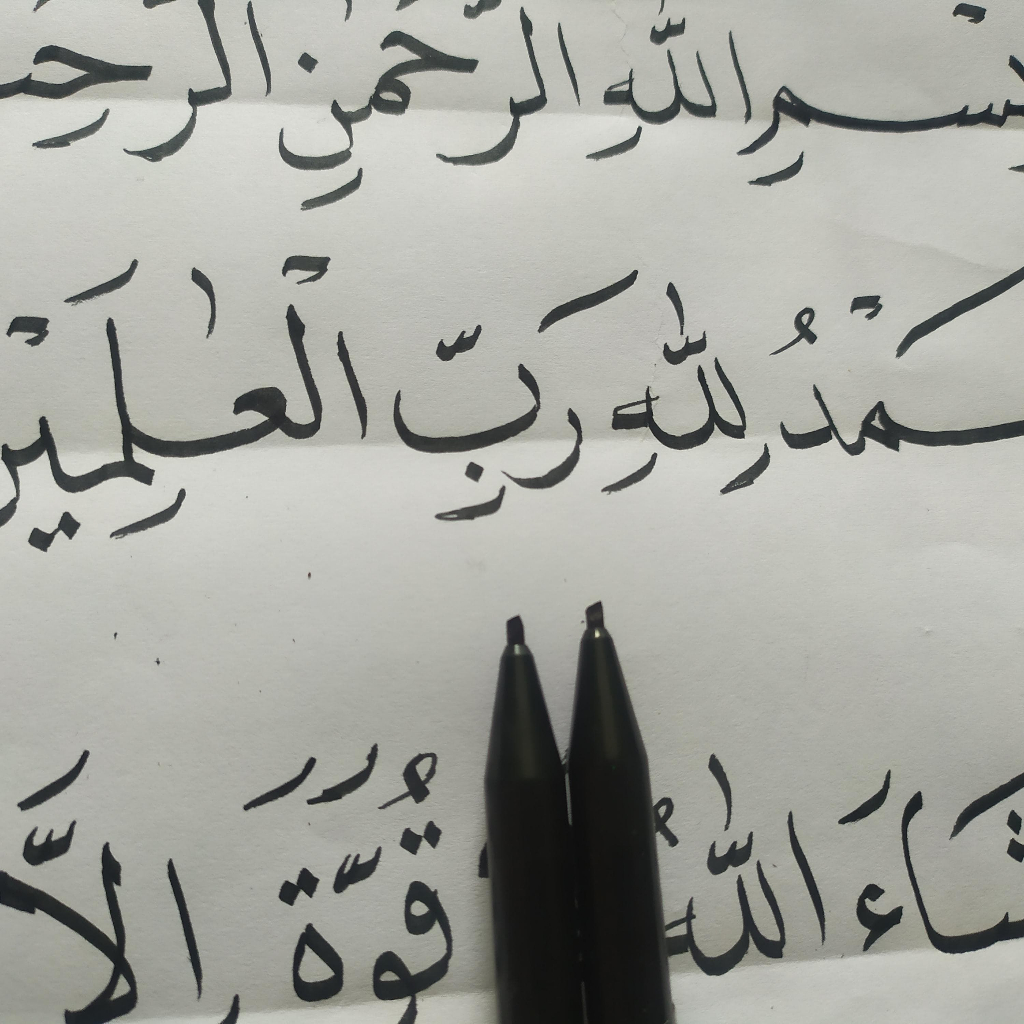 بِسْمِ اللّٰهِ الرَّحْمٰنِ الرَّحِيـ
ـحَمْدُ لِلّٰهِ رَبِّ الْعٰلَمِيْن
شَاءَ اللّٰهُ قُوَّةَ اِلَّا